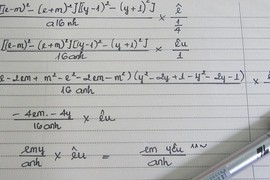 [(e-m)² - (e+m)²][(y-1)² - (y+1)²] / a16nh × ê / (1/4)
[(e-m)² - (e+m)²][(y-1)² - (y+1)²] / 16anh × êu / 1
e - 2em + m² - e² - 2em - m²)(y² - 2y + 1 - y² - 2y - 1) / 16 anh ×
-4em. -4y / 16anh × êu
emy / anh × êu = em yêu / anh